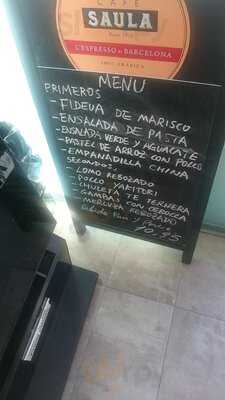 CAFÈ
SAULA
L'ESPRESSO DE BARCELONA
100% ARÀBICA
MENU
PRIMEROS
- FIDEUA DE MARISCO
- ENSALADA DE PASTA
- ENSALADA VERDE Y AGUACATE
- PASTEL DE ARROZ CON POLLO
- EMPANADILLA CHINA
SEGUNDOS:
- LOMO REBOZADO
- POLLO YAKITORI
- CHULETA TE TERNERA
- GAMBAS CON CEBOLLA
- MERLUZA REBOZADO
Bebida Pan y
10.95